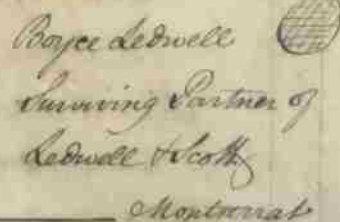 Boyce Ledwell
Surviving Partner of
Ledwell & Scott
Montserrat